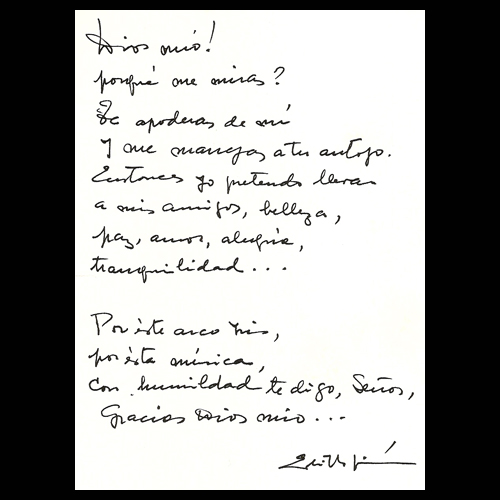 Dios mió!
porqué me miras?
Te apoderas de mí
Y me manejas a tu antojo.
Entonces yo pretendo llevar
a mis amigos, belleza,
paz, amor, alegría,
tranquilidad...
Por éste arco Iris,
por ésta música,
con humildad te digo, Señor,
Gracias Dios mio...